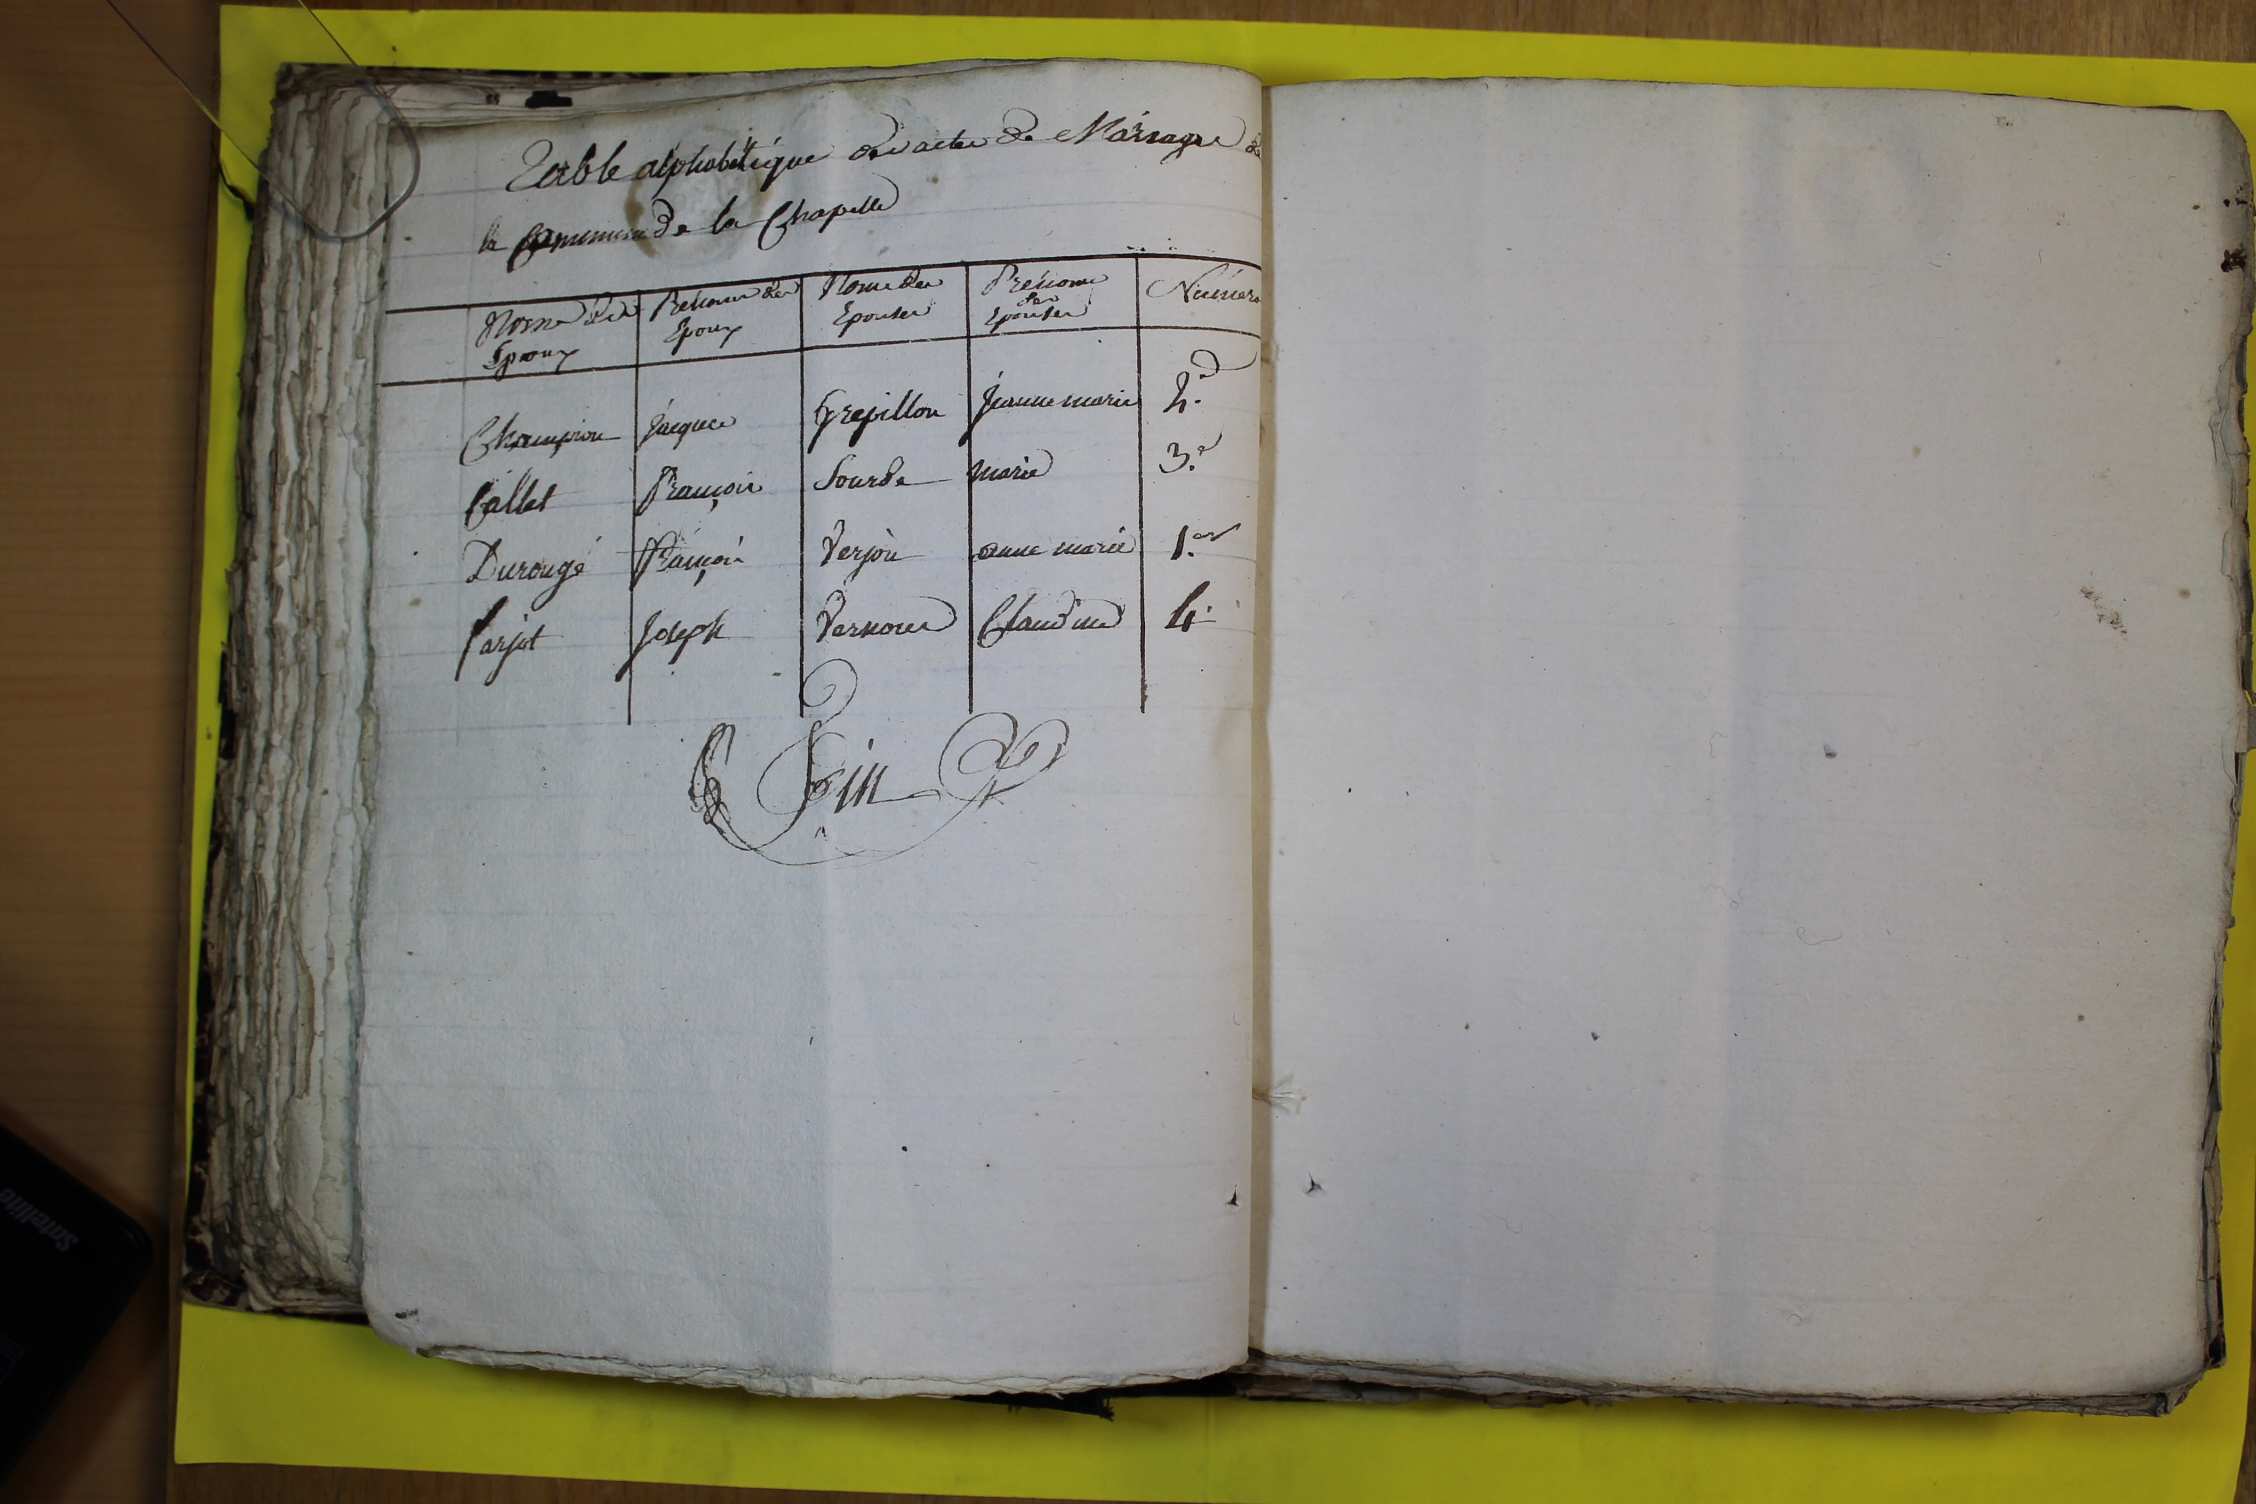 Table alphabétique des actes de Mariages de
la Commune de la Chapelle
Noms des Epoux | Prénoms des Epoux | Noms des Epouses | Prénoms des Epouses | Numéro
Champion | Jacques | Grepillon | Jeanne marie | 2.d
Callet | François | Sourde | marie | 3.e
Durougé | François | Verjon | anne marie | 1.er
Carjot | Joseph | Vernoux | Claudine | 4.
Fin
Satellite